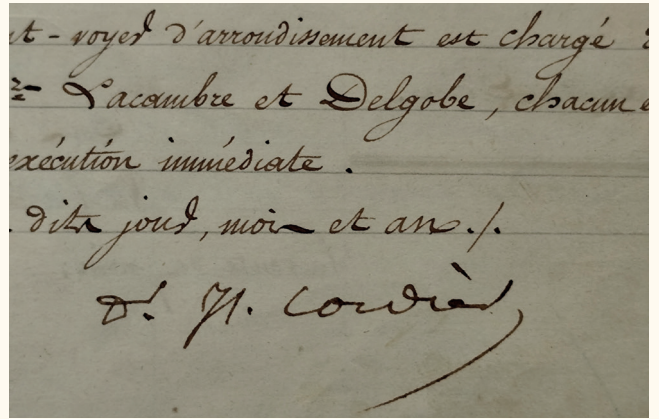 nt-voyer d'arrondissement est chargé
Lacambre et Delgobe, chacun e
exécution immédiate.
dits jour, mois et an./.
Dr. H. Cordier